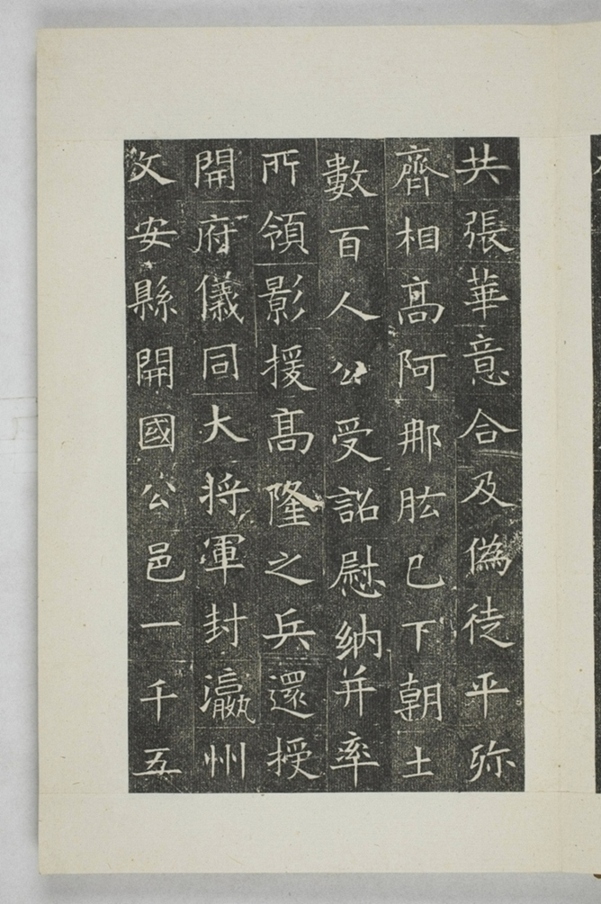 共張華意合及偽徒平弥
齊相高阿那肱已下朝士
數百人公受詔慰納并率
所領影援高隆之兵還授
開府儀同大将軍封瀛州
文安縣開國公邑一千五